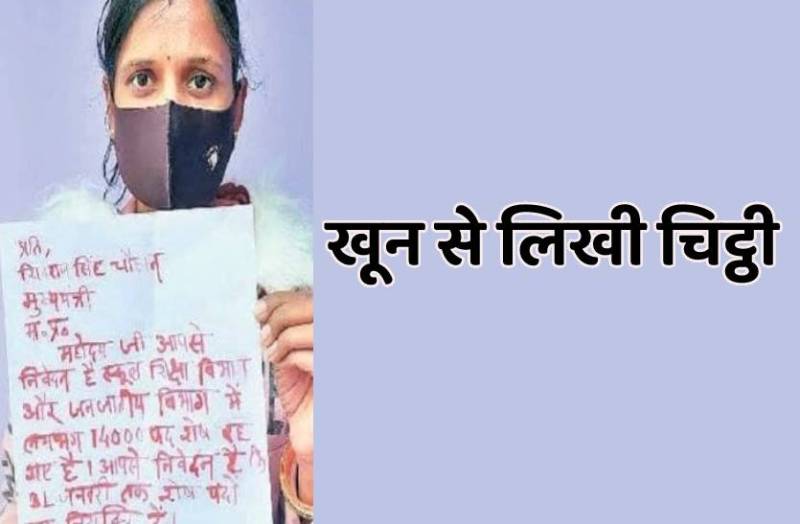 प्रति,
शिवराज सिंह चौहान
मुख्यमंत्री
म.प्र.
महोदय जी आपसे
निवेदन है स्कूल शिक्षा विभाग
और जनजातीय विभाग में
लगभग 14000 पद शेष रह
गए है। आपसे निवेदन है कि
31 जनवरी तक शेष पदों
नियुक्ति दें।
खून से लिखी चिट्ठी